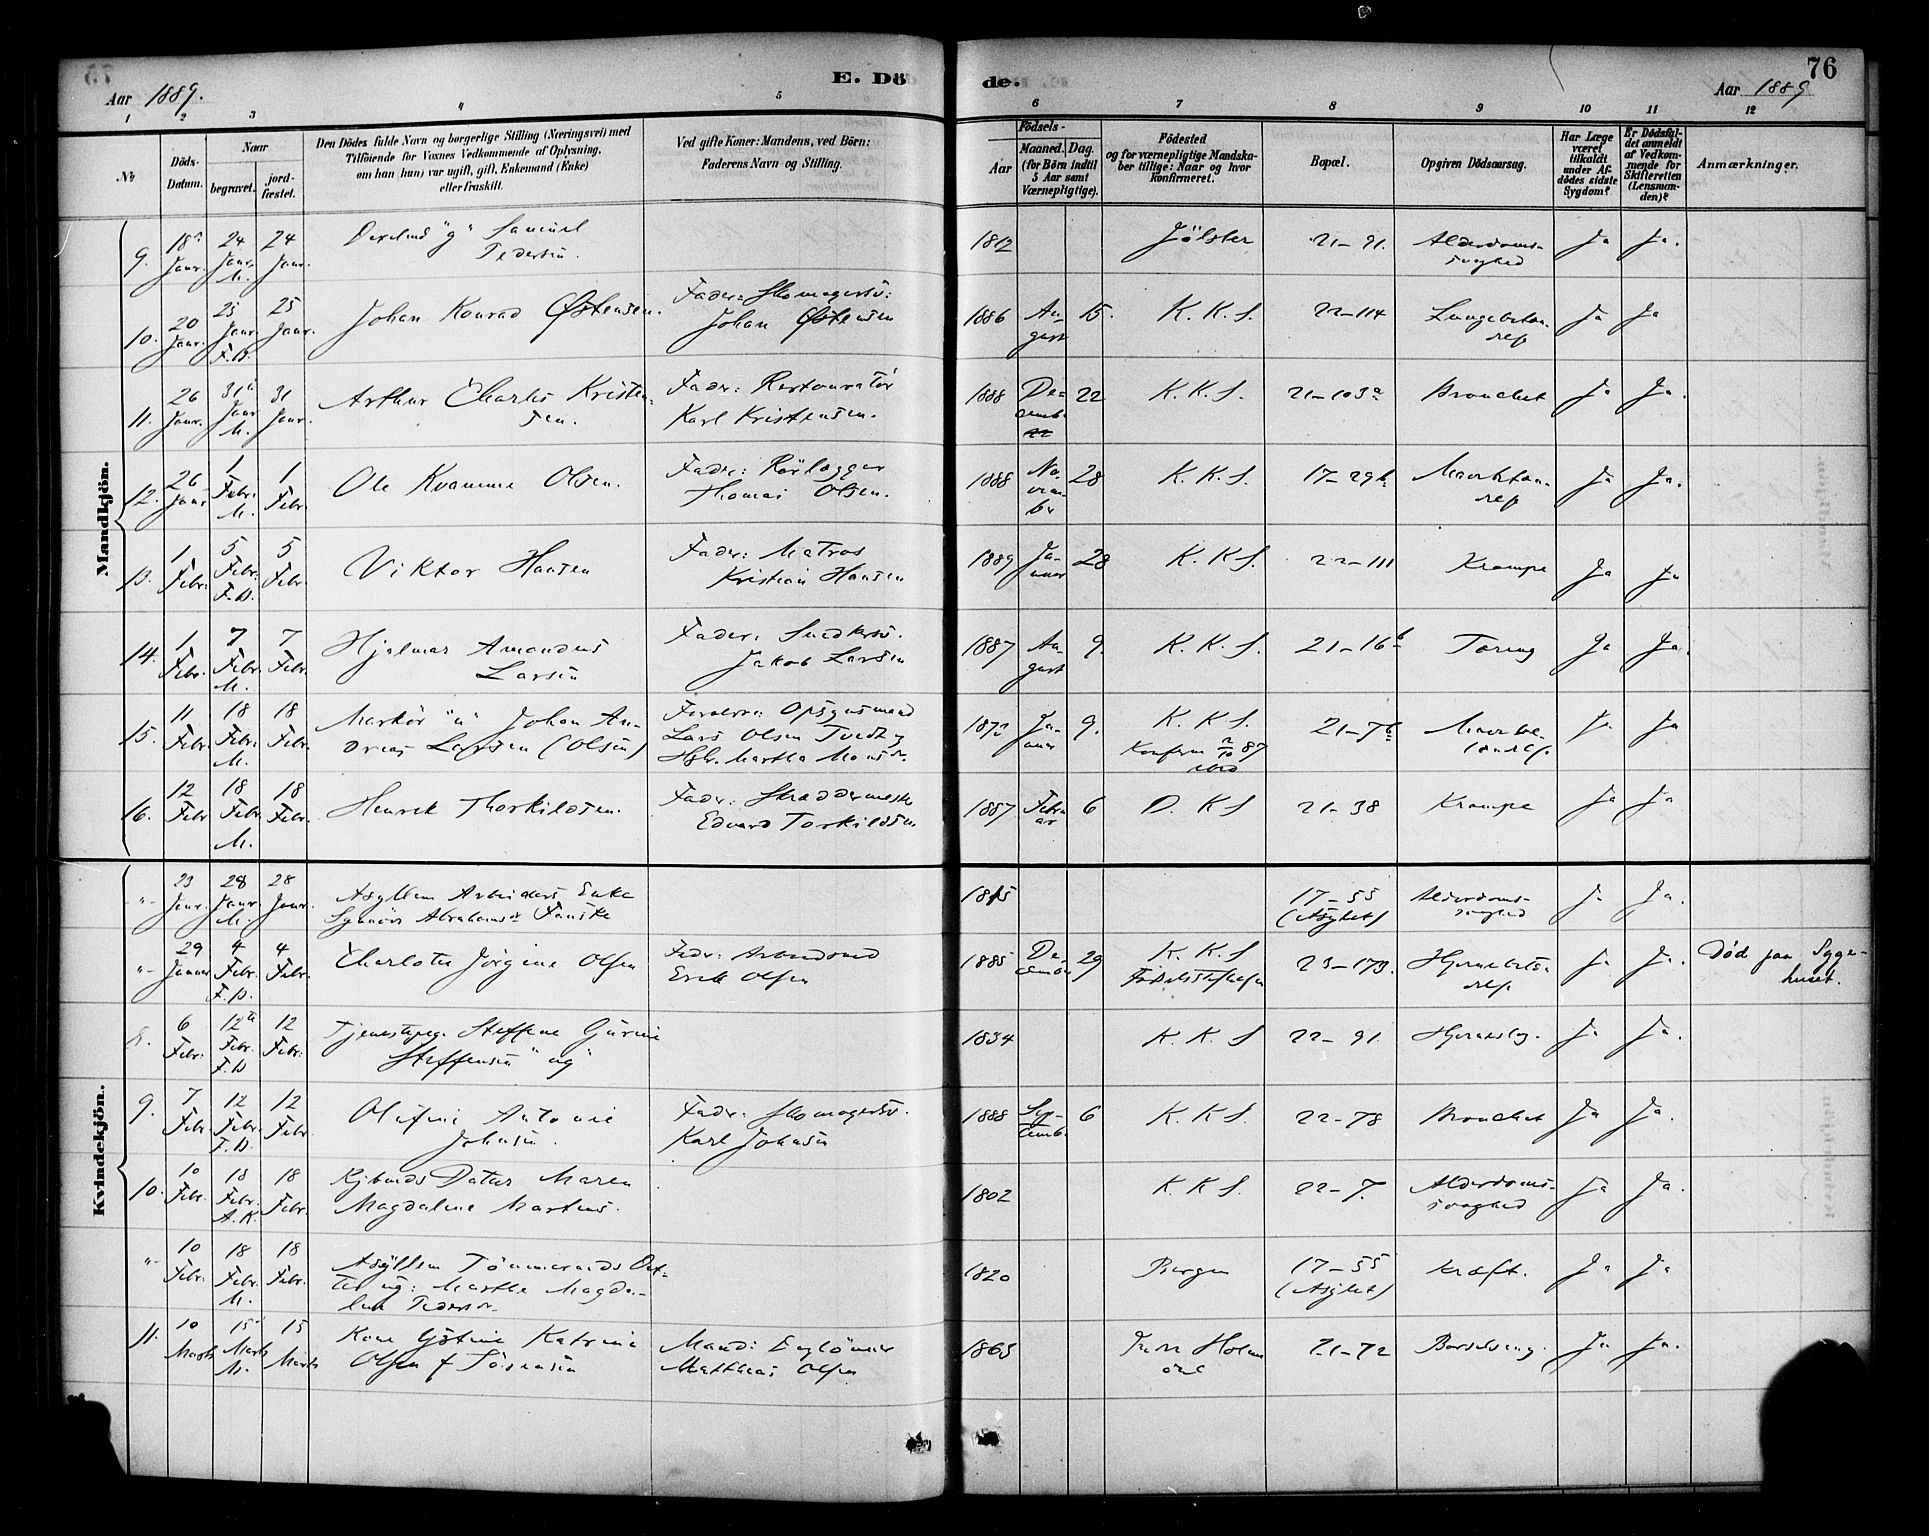 Aar 1889.
E. Dö
de.
76
Aar 1889
1 2 3 4 5 6 7 8 9 10 11 12
№
Döds-
Datum.
Naar
begravet.
jord-
fæstet.
Den Dödes fulde Navn og borgerlige Stilling (Næringsvei) med
Tilföiende for Voxnes Vedkommende af Oplysning,
om han (hun) var ugift, gift, Enkemand (Enke)
eller fraskilt.
Ved gifte Koner: Mandens, ved Börn:
Faderens Navn og Stilling.
Födsels-
Aar
Maaned. Dag.
(for Börn indtil
5 Aar samt
Værnepligtige).
Födested
og for værnepligtige Mandska-
ber tillige: Naar og hvor
konfirmeret.
Bopæl.
Opgiven Dödsaarsag.
Har Læge
været
tilkaldt
under Af-
dödes sidste
Sygdom?
Er Dödsfal-
det anmeldt
af Vedkom-
mende for
Skifteretten
(Lensman-
den)?
Anmærkninger.
Mandkjön.
9. 18 Janr. 24 Janr. M. 24 Janr. "g" Samuel
Pedersen.
1812 Jölster 21-91. Alderdoms-
svaghed Ja Ja.
10. 20 Janr. 25 Janr. F.B. 25 Janr. Johan Konrad Østensen. Fader: Skomagersv:
Johan Østensen
1886 Au-
gust 15. K. K. S. 22-114 Lungebetæn.
else Ja Ja
11. 26 Janr. 31 Janr M. 31 Janr. Arthur Charles Kristen-
sen. Fader: Restauratør
Karl Kristensen.
1888 De-
cemb. 22 K. K. S. 21-103a Bronchit Ja Ja.
12. 26 Janr 1 Febr. M. 1 Febr. Ole Kvamme Olsen. Fader: Rörlægger
Thomas Olsen.
1888 No-
vem-
ber 28 K. K. S. 17-29b Ja Ja.
13. 1 Febr. 5 Febr. F.B. 5 Febr. Viktor Hansen Fader: Matros
Kristian Hansen
1889 Ja-
nuar 28 K. K S. 22-111 Krampe Ja Ja
14. 1 Febr. 7 Febr. M. 7 Febr. Hjalmar Amandus
Larsen Fader: Snedkersv.
Jakob Larsen
1887 Au-
gust 9. K. K. S. 21-16b Tæring Ja Ja.
15. 11 Febr. 18 Febr. M. 18 Febr. Markör "u" Johan An-
dreas Larsen (Olsen) Forældre: Opsynsmand
Lars Olsen Tvedt og
Martha Monsdr.
1872 Ja-
nuar 9. K. K S.
Konfirm 2/10 87
21-7b Ja Ja
16. 12 Febr 18 Febr. M. 18 Febr. Henrik Thorkildsen. Fader: Skræddermester
Edvard Torkildsen
1887 Febru
ar 6 D. K S 21-38 Krampe Ja Ja
Kvindekjön.
-"- 23 Janr. 28 Janr. M. 28 Janr. Asyllem Arbeiders Enke
Synnöve Abrahamsdr Fanske
1815 17-55
(Asylet) Alderdoms-
svaghed Ja Ja.
-"- 29 Januar 4 Febr. F.B. 4 Febr. Charlotte Jörgine Olsen Fader: Arbeidsmd
Erik Olsen
1885 De-
cember 29 K. K. S
Födselsstiftelsen 23-173. Hjernebetæn-
else Ja Ja. Død paa Syge-
huset.
8. 6 Febr. 12te Febr. F.B 12 Febr. Tjenestepge. Steffine Gurine
Steffensen "ug"
1834 K. K. S 22-91. Hjerneslag. Ja Ja.
9. 7 Febr 12 Febr. F.B. 12 Febr. Olufine Antonie
Johnsen. Fader: Skomagersv.
Karl Johnsen
1888 Sep-
temb. 6 K. K S. 22-78 Bronchit Ja Ja.
10. 10 Febr. 18 Febr. A.K. 18 Febr. Kjbmds Datter Maren
Magdalene Martens.
1802 K. K S. 22-7. Alderdoms-
svaghed Ja Ja.
-"- 10 Febr. 18 Febr. M. 18 Febr. Asyllem Tömmermds Dat-
ter ug: Marthe Magda-
lene Pedersdr.
1820 Bergen 17-55
(Asylet) Kræft. Ja Ja
11. 10 Marts 15 Marts M. 15 Marts Kone Katrine
Olsen f Sörensen Mand:
Matthias Olsen
1863 21-72 Barselseng. Ja Ja.